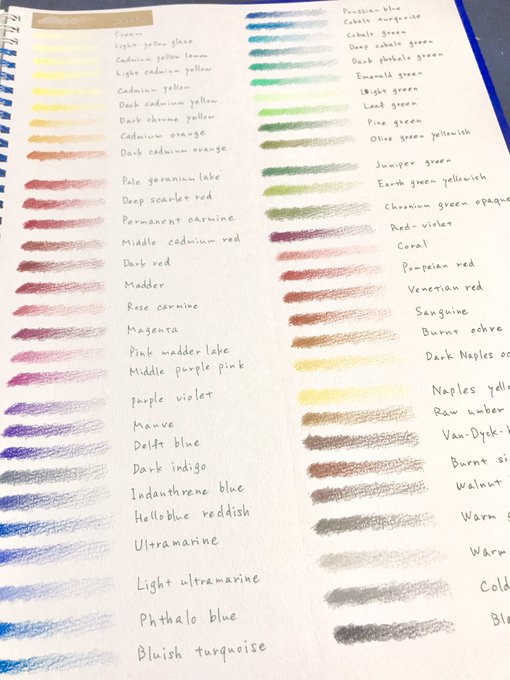 Cream
Light yellow glaze
Cadmium yellow lemon
Light cadmium yellow
Cadmium yellow
Dark cadmium yellow
Dark chrome yellow
Cadmium orange
Dark cadmium orange
Pale geranium lake
Deep scarlet red
Permanent carmine
Middle cadmium red
Dark red
Madder
Rose carmine
Magenta
Pink madder lake
Middle purple pink
purple violet
Mauve
Delft blue
Dark indigo
Indanthrene blue
Helloblue reddish
Ultramarine
Light ultramarine
Phthalo blue
Bluish turquoise
Prussian blue
Cobalt turquoise
Cobalt green
Deep cobalt green
Dark phthalo green
Emerald green
Light green
Leaf green
Pine green
Olive green yellowish
Juniper green
Earth green yellowish
Chromium green opaque
Red-violet
Coral
Pompeian red
Venetian red
Sanguine
Burnt ochre
Dark Naples oc
Naples yello
Raw umber
Van-Dyck-b
Burnt si
Walnut
Warm g
Warm
Cold
Bla